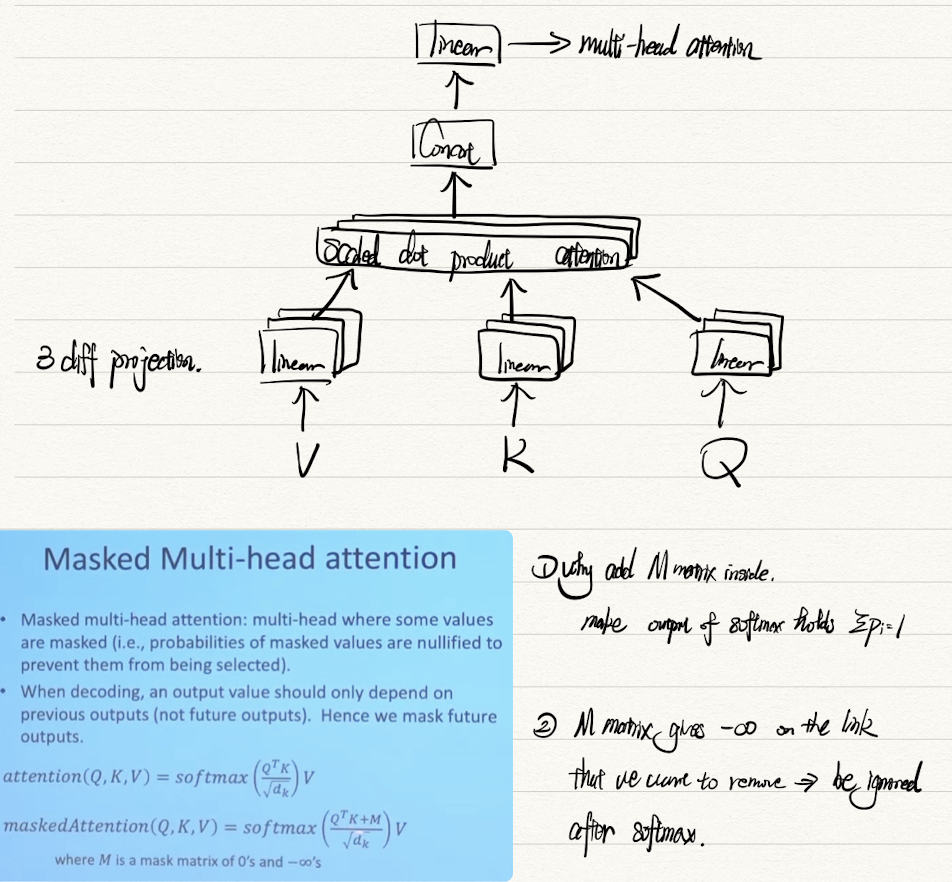 linear → multi-head attention
Concat
Scaled dot product attention
3 diff projection.
linear linear linear
V K Q
Masked Multi-head attention
• Masked multi-head attention: multi-head where some values
are masked (i.e., probabilities of masked values are nullified to
prevent them from being selected).
• When decoding, an output value should only depend on
previous outputs (not future outputs). Hence we mask future
outputs.
attention(Q, K, V) = softmax (Q^T K / √d_k) V
maskedAttention(Q, K, V) = softmax (Q^T K+M / √d_k) V
where M is a mask matrix of 0's and −∞'s
① why add M matrix inside.
make output of softmax holds Σp_i=1
② M matrix gives -∞ on the link
that we want to remove → be ignored
after softmax.